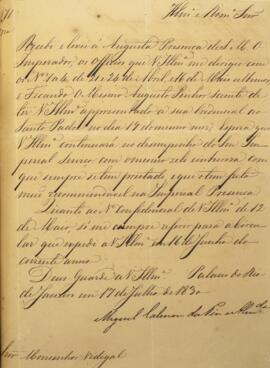 Illmo e Revmo Snr
Recebi e levei á Augusta Presença de S. M. O
Imperador, os Officios que V Illma me dirigio com
os Nos 1 a 4 de 21 e 24 de Abril, e de Maio ultimos;
e Ficando O Mesmo Augusto Senhor sciente de
ter V Illma apresentado a sua Credencial ao
Santo Padre no dia 17 do mesmo mez; espera que
V Illma continuará no desempenho do Seu Im-
perial Serviço com o mesmo zelo
com
que sempre se tem prestado e que o tem feito
mui recommendavel na Imperial Presença.
Quanto ao No Confidencial de V Illma de 12
de Maio, só me cumpre a
lar que expedi a V Illma em 16 de Junho do
corrente anno.
Deus Guarde a V Illma Palacio do Rio
de Janeiro em 17 de Julho de 1830
Miguel Calmon du Pin e Almda
Snr Monsenhor Vidigal